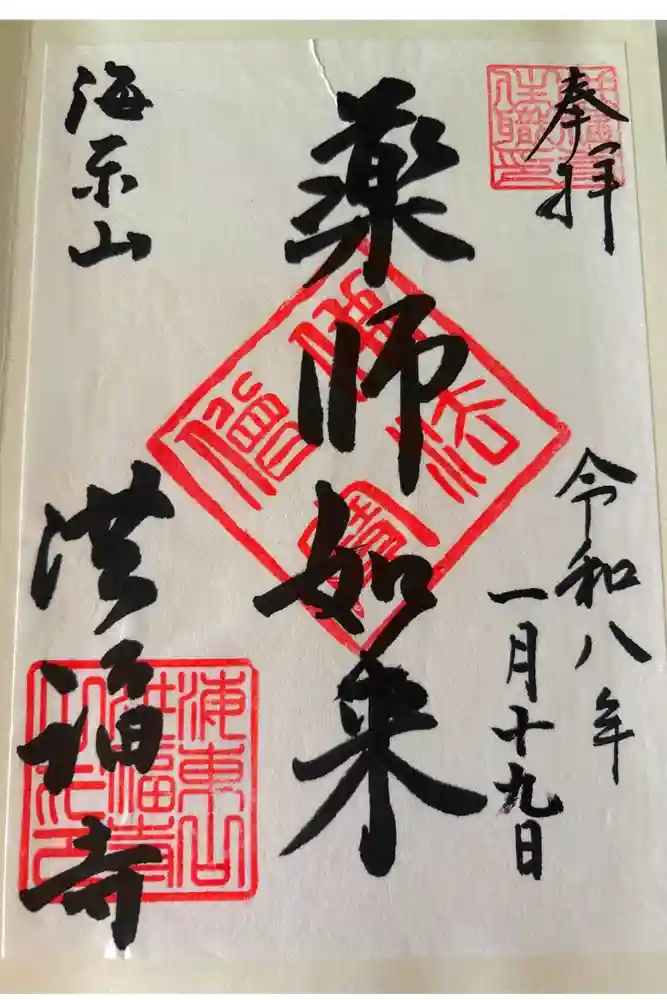 奉拝
令和八年
一月十九日
薬師如来
海東山
洪福寺
海東山
洪福寺